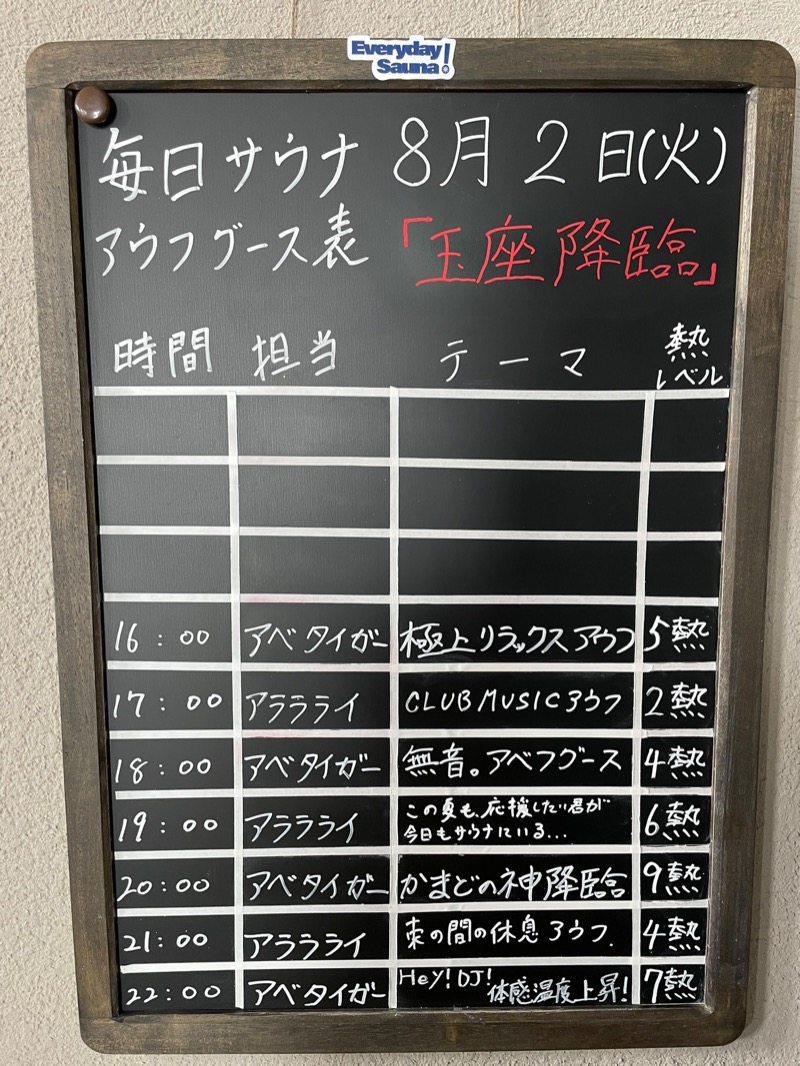 Everyday
Sauna!
毎日サウナ 8月2日(火)
アウフグース表 「玉座降臨」
時間 担当 テーマ 熱レベル
16:00 アベタイガー 極上リラックスアウフ 5熱
17:00 アララライ CLUB MUSIC ヨウフ 2熱
18:00 アベタイガー 無音。アベフグース 4熱
19:00 アララライ この夏も、応援したい君が
今日もサウナにいる... 6熱
20:00 アベタイガー かまどの神降臨 9熱
21:00 アララライ 束の間の休息 ヨウフ. 4熱
22:00 アベタイガー HeY! DJ!
体感温度上昇! 7熱